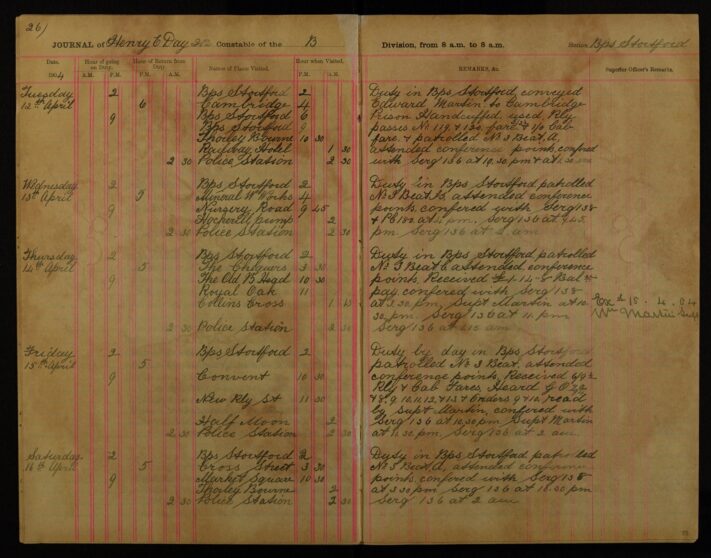 26/
JOURNAL of Henry E Day Constable of the B Division, from 8 a.m. to 8 a.m. Station Bps Stortford
Date. Hour of going on Duty. Hour of Return from Duty Names of Places Visited. Hour when Visited. REMARKS, &c. Superior Officer's Remarks.
1904 A.M. P.M. P.M. A.M. P.M. A.M.
Tuesday 2 Bps Stortford 2 Duty in Bps Stortford, conveyed
12th April 6 Cambridge 4 Edward Martin to Cambridge
9 Bps Stortford 6 Prison Handcuffed, used Rly
Bps Stortford 9 passes No 119 & 120, fare & 1/0 Cab
Thorley Bourne 10 30 fare. & patrolled No 3 Beat A,
Railway Hotel 1 30 attended conference points, confered
2 30 Police Station 2 30 with Serg 136 at 10.30 pm & at
Wednesday 2 Bps Stortford 2 Duty in Bps Stortford patrolled
13th April 5 Mineral Wr Works 4 No 3 Beat B, attended conference
9 Nursery Road 9 45 points, confered with Serg 138
Hockerill pump 2 & Pc at pm. Serg 136 at 9.45
2 30 Police Station 2 30 pm Serg 136 at 2 am
Thursday 2 Bps Stortford 2 Duty in Bps Stortford patrolled
14th April 5 The Chequers 3 30 No 3 Beat C attended conference
9 The Old B. Head 10 30 points, Received £1-14-8
Royal Oak 11 pay, confered with Serg 138
Collins Cross 1 15 at 3.30 pm, Supt Martin at 10.
30 pm. Serg 136 at 11 pm
2 30 Police Station 2 30 Serg 136 at am
Exd 15.4.04
Wm Martin Supt
Friday 2 Bps Stortford 2 Duty by day in Bps Stortford
15th April 5 patrolled No 3 Beat, attended
9 Convent 10 30 conference points, Received
Rly & Cab Fares, Heard G O
New Rly St 11 30 & 8, 9, 10, 11, 12, & 13 & Orders 9 & 10, read
by Supt Martin, confered with
Half Moon 2 Serg 136 at 10.30 pm Supt Martin
2 30 Police Station 2 30 at 11.30 pm, Serg 136 at 2 am
Saturday 2 Bps Stortford 2 Duty in Bps Stortford patrolled
16th April 5 Cross Street 3 30 No 3 Beat A, attended conference
9 Market Square 10 30 points, confered with Serg 138
Thorley Bourne 2 at 3.30 pm Serg 136 at 10.30 pm
2 30 Police Station 2 30 Serg 136 at 2 am